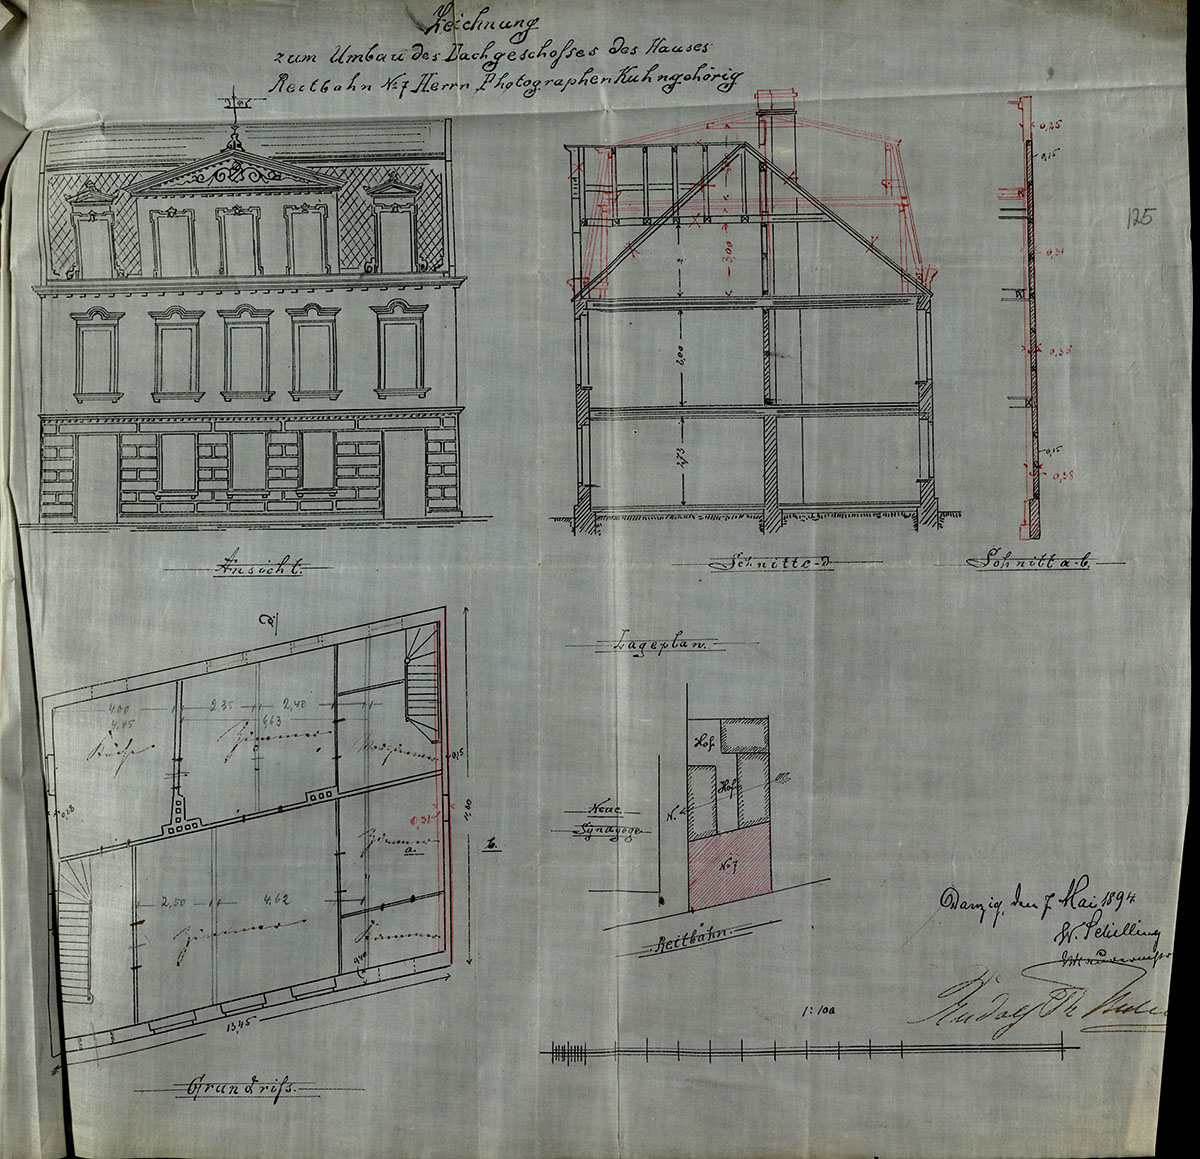 Zeichnung
zum Umbau des Dachgeschosses des Hauses
Reitbahn No 7 Herrn Photographen Kuhn gehörig
125
0,25
0,15
0,31
0,38
0,15
0,38
3,00
2
3,00
2,73
Ansicht.
Schnitt c-d
Schnitt a-b.
d.
4.00
4.45
2.35
2,40
4,63
Küche
Zimmer
0,15
0,38
0,31
11,80
Zimmer
a.
b.
2,50
4.62
Zimmer
Kammer
0,40
13,45
Grundriss.
Lageplan.
Hof.
Hof.
N.
Neue
Synagoge
No 7
Reitbahn.
Danzig, den 7 Mai 1894
W. Schilling
Maurermstr
Rudolf Th. Kuhn
1:100